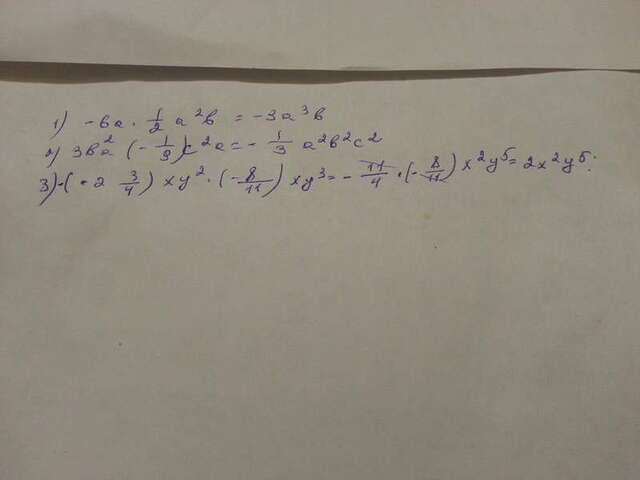 1) -6a · 1/2 a²b = -3a³b
2) 3ba² (-1/9)c²a = -1/3 a²b²c²
3) -(- 2 3/4) xy² · (-8/11) xy³ = - 11/4 · (-8/11) x²y⁵ = 2x²y⁵.